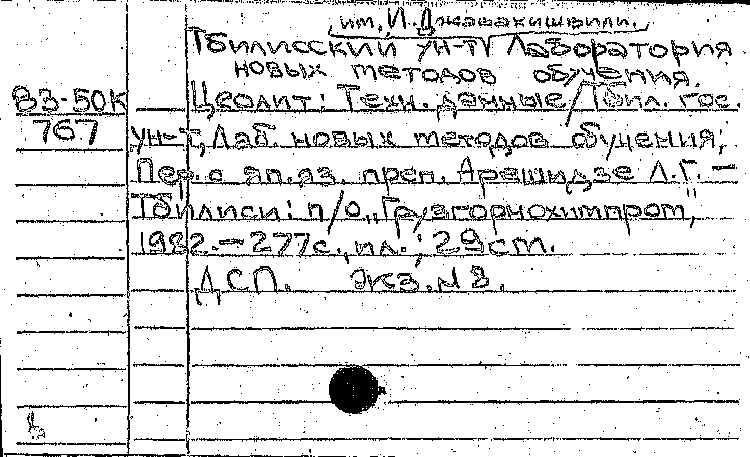 им. И. Джавахишвили.
Тбилисский ун-т Лаборатория
новых методов обучения.
В3-50К
767
Цеолит: Техн. данные / Тбил. гос.
ун-т, Лаб. новых методов обучения;
Пер. с яп. яз. преп. Арешидзе Л.Г. —
Тбилиси: п/о „Грузгорнохимпром",
1982. — 277с., ил.; 29 см.
ДСП. Экз. № 8.